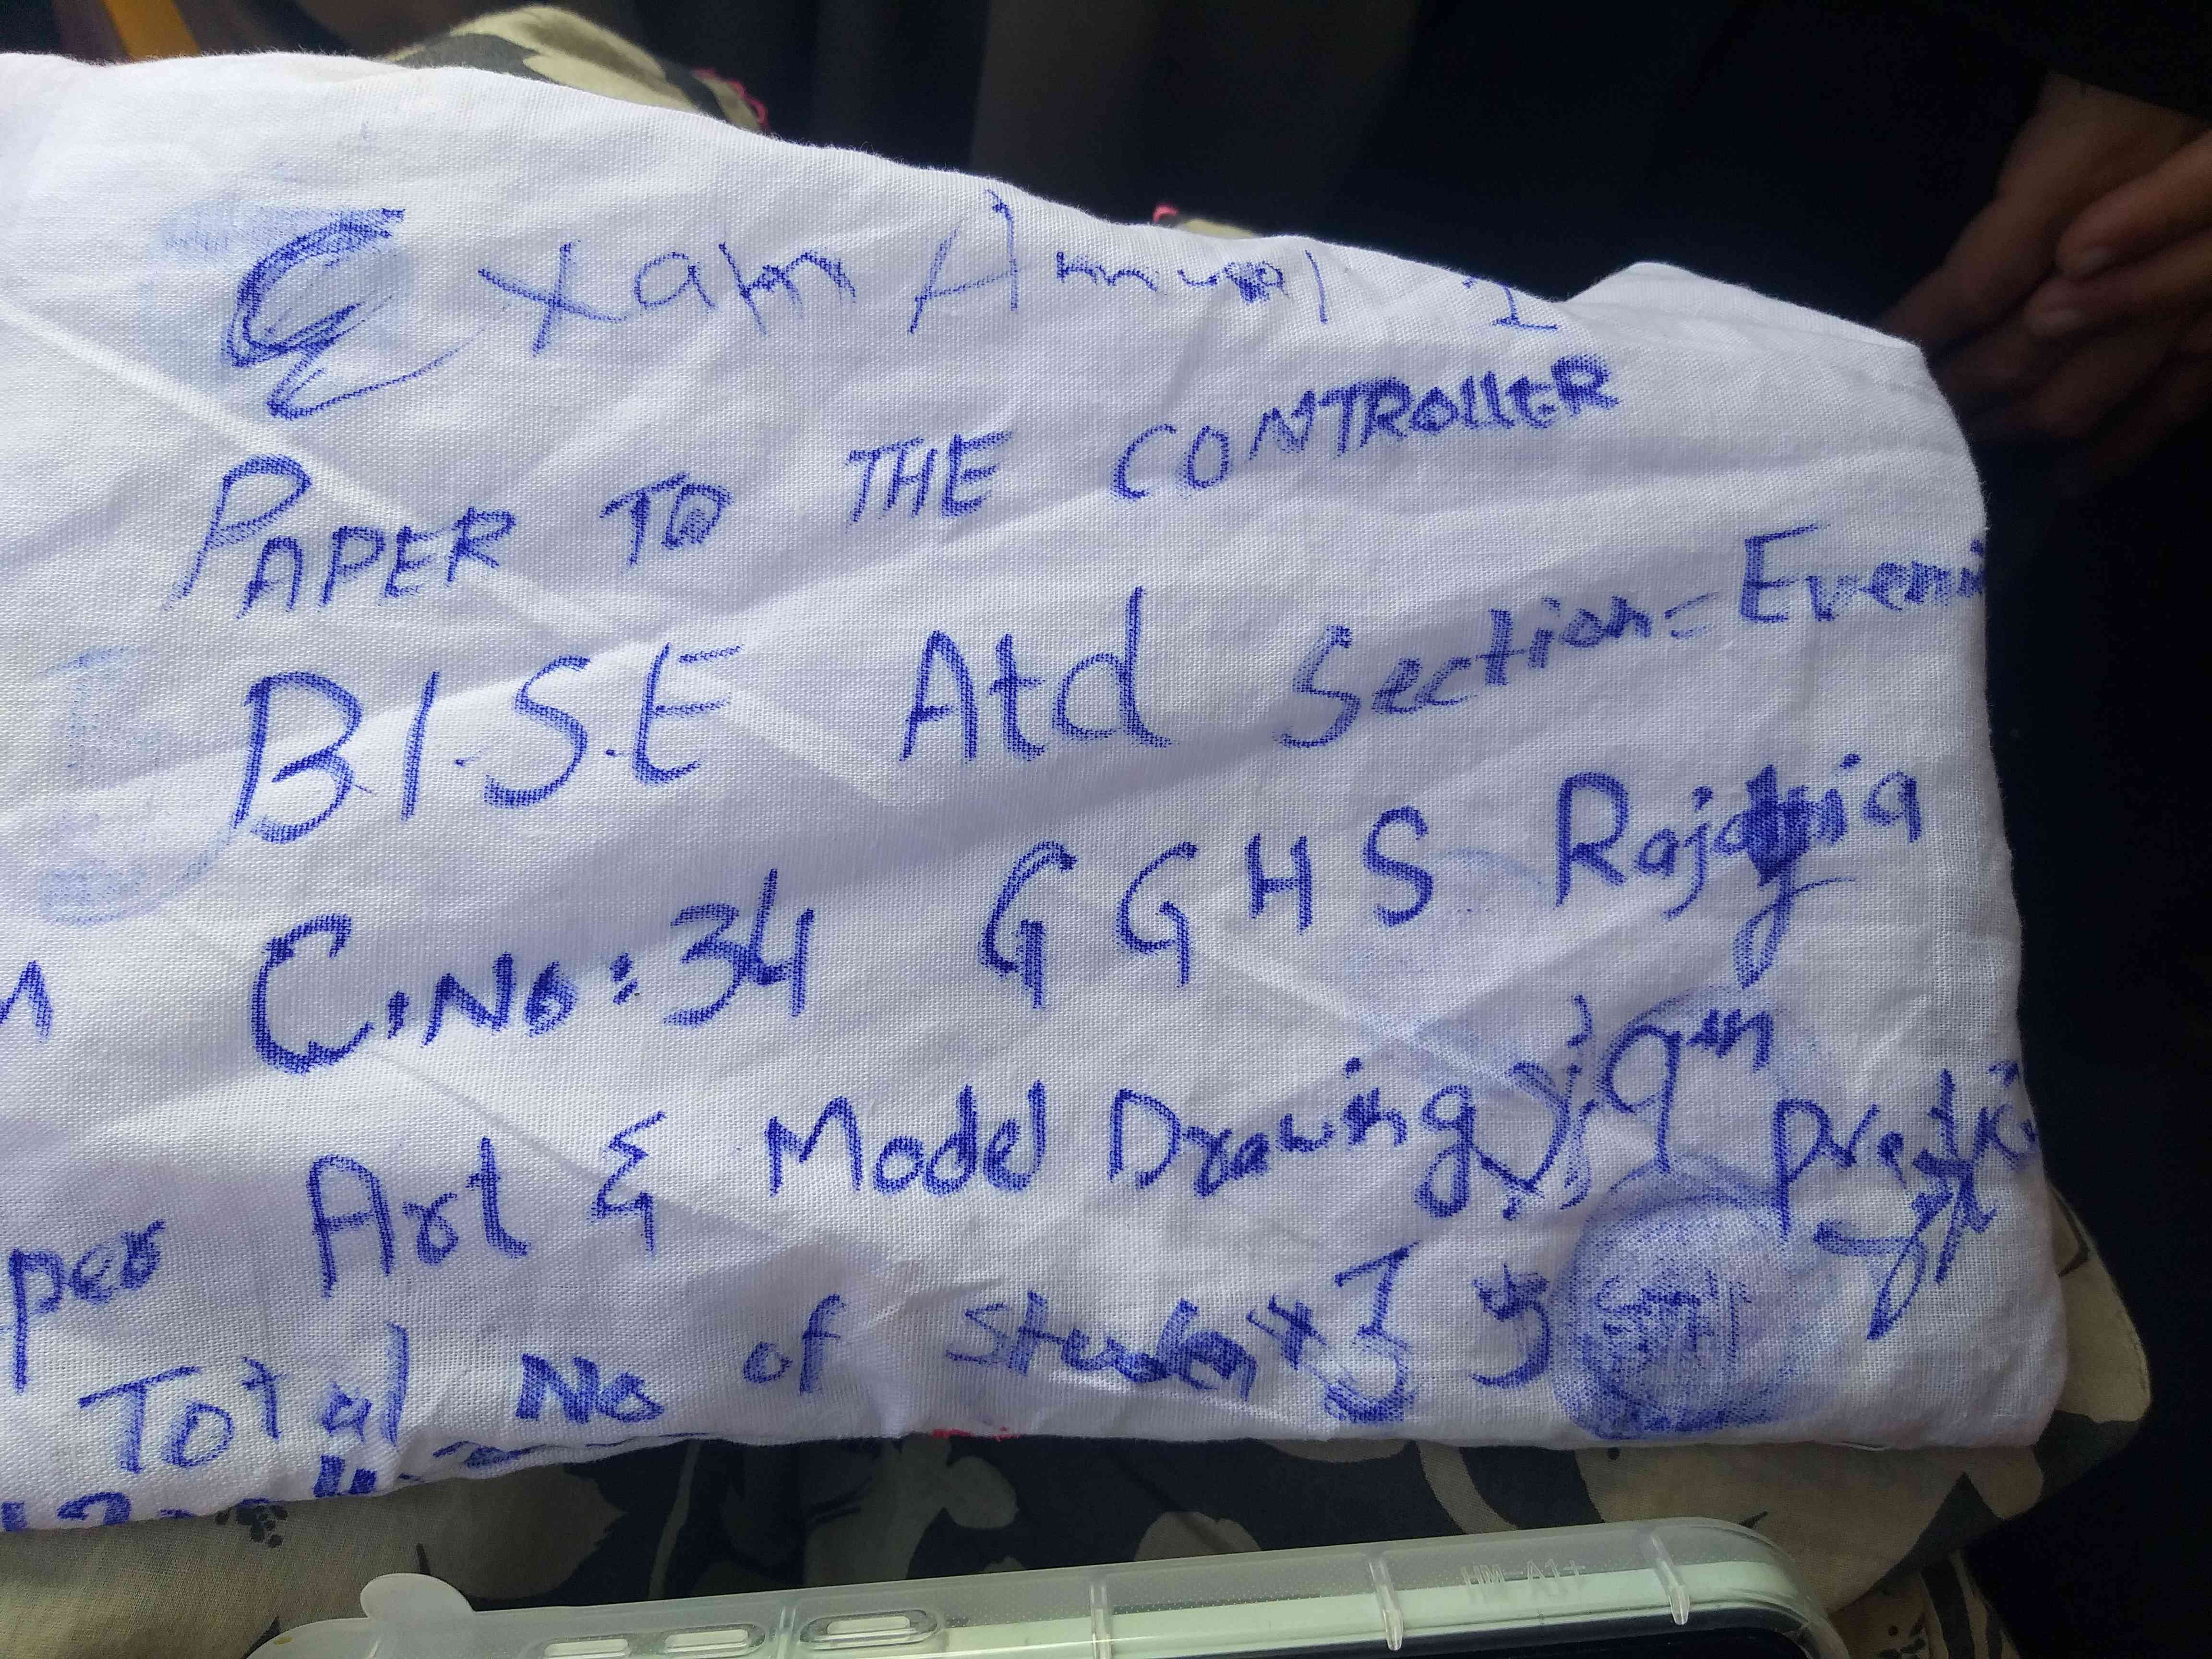 Exam Annual I
PAPER TO THE CONTROLLER
B.I.S.E Atd Section = Eveni
C.No: 34 G G H S
per Art & Model Drawing 9th
Total No of Student 35
HM-A1+